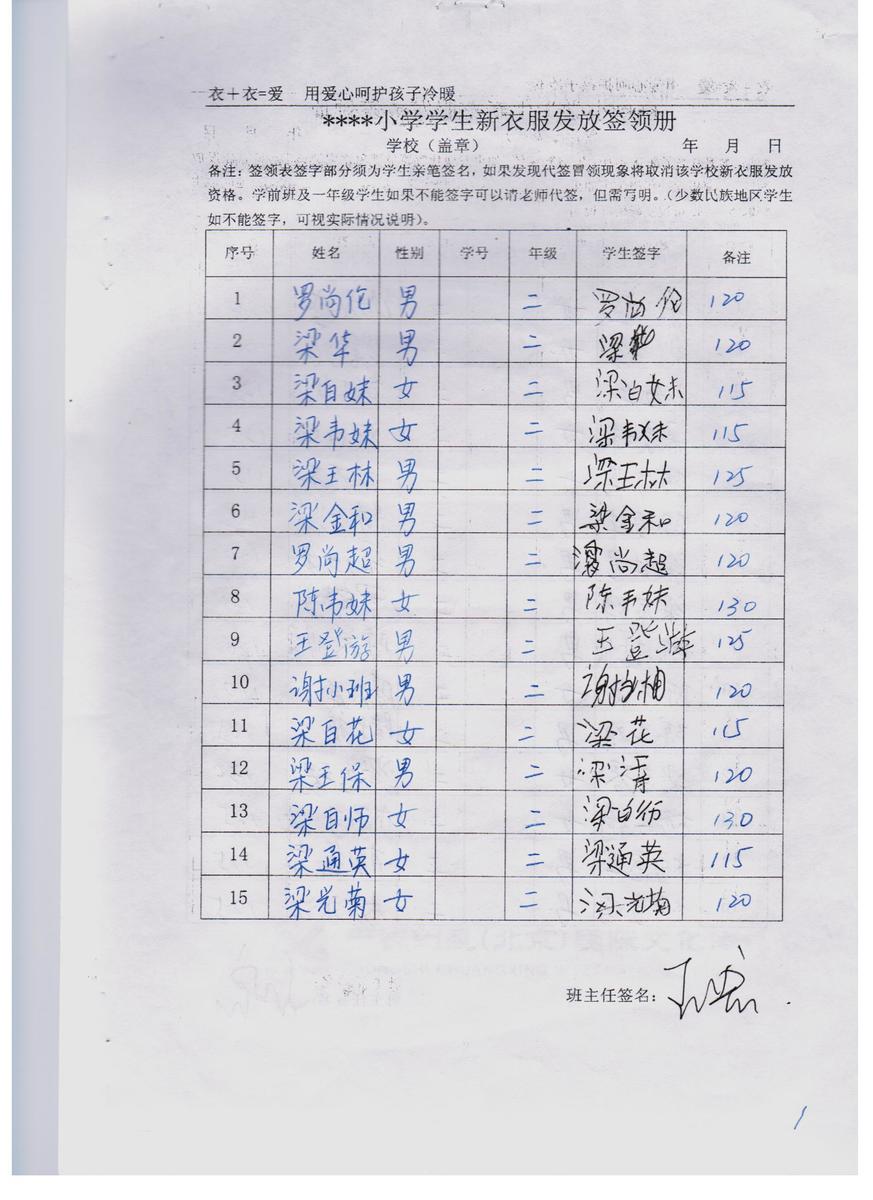 衣+衣=爱 用爱心呵护孩子冷暖
****小学学生新衣服发放签领册
学校（盖章） 年 月 日
备注：签领表签字部分须为学生亲笔签名，如果发现代签冒领现象将取消该学校新衣服发放
资格。学前班及一年级学生如果不能签字可以请老师代签，但需写明。（少数民族地区学生
如不能签字，可视实际情况说明）。
序号 姓名 性别 学号 年级 学生签字 备注
1 罗尚伦 男 二 罗尚伦 120
2 梁华 男 二 梁华 120
3 梁自妹 女 二 梁自妹 115
4 梁韦妹 女 二 梁韦妹 115
5 梁王林 男 二 梁王林 125
6 梁金和 男 二 梁金和 120
7 罗尚超 男 二 尚超 120
8 陈韦妹 女 二 陈韦妹 130
9 王登游 男 二 王登游 125
10 谢小班 男 二 谢 120
11 梁自花 女 二 梁花 115
12 梁王保 男 二 梁 120
13 梁自师 女 二 梁自 130
14 梁通英 女 二 梁通英 115
15 梁光菊 女 二 梁光菊 120
班主任签名：
1